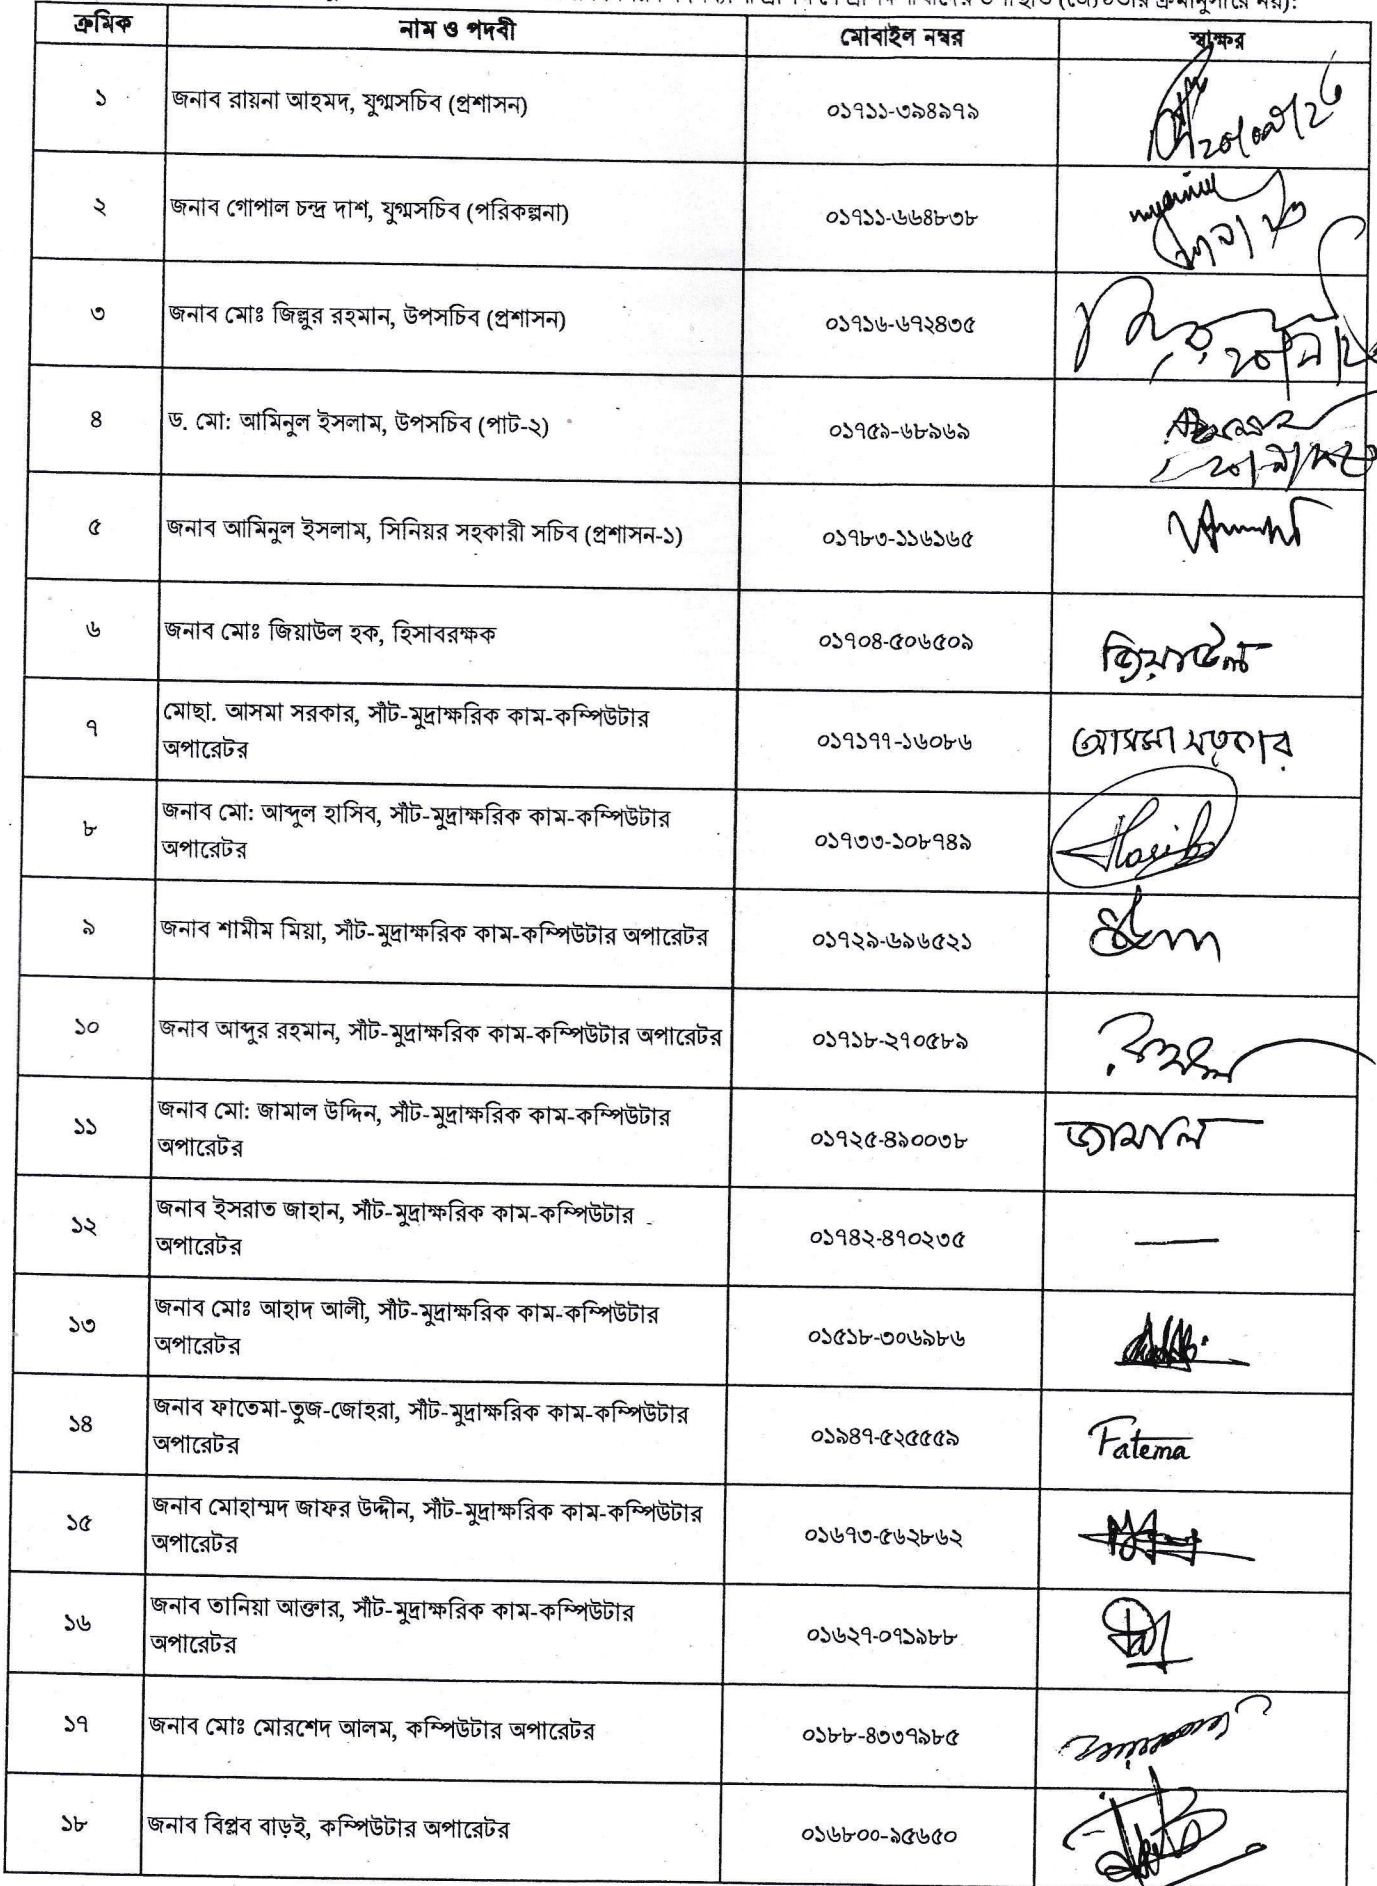 (জ্যেষ্ঠতার ক্রমানুসারে নয়):
ক্রমিক নাম ও পদবী মোবাইল নম্বর স্বাক্ষর
১ জনাব রায়না আহমদ, যুগ্মসচিব (প্রশাসন) ০১৭১১-৩৯৪৯৭৯
২ জনাব গোপাল চন্দ্র দাশ, যুগ্মসচিব (পরিকল্পনা) ০১৭১১-৬৬৪৮৩৮
৩ জনাব মোঃ জিল্লুর রহমান, উপসচিব (প্রশাসন) ০১৭১৬-৬৭২৪৩৫
৪ ড. মো: আমিনুল ইসলাম, উপসচিব (পাট-২) ০১৭৫৯-৬৮৯৬৯
৫ জনাব আমিনুল ইসলাম, সিনিয়র সহকারী সচিব (প্রশাসন-১) ০১৭৮৩-১১৬১৬৫
৬ জনাব মোঃ জিয়াউল হক, হিসাবরক্ষক ০১৭০৪-৫০৬৫০৯ জিয়াউল
৭ মোছা. আসমা সরকার, সাঁট-মুদ্রাক্ষরিক কাম-কম্পিউটার
অপারেটর ০১৭১৭৭-১৬০৮৬ আসমা সরকার
৮ জনাব মো: আব্দুল হাসিব, সাঁট-মুদ্রাক্ষরিক কাম-কম্পিউটার
অপারেটর ০১৭৩৩-১০৮৭৪৯ Hasib
৯ জনাব শামীম মিয়া, সাঁট-মুদ্রাক্ষরিক কাম-কম্পিউটার অপারেটর ০১৭২৯-৬৯৬৫২১
১০ জনাব আব্দুর রহমান, সাঁট-মুদ্রাক্ষরিক কাম-কম্পিউটার অপারেটর ০১৭১৮-২৭০৫৮৯
১১ জনাব মো: জামাল উদ্দিন, সাঁট-মুদ্রাক্ষরিক কাম-কম্পিউটার
অপারেটর ০১৭২৫-৪৯০০৩৮ জামাল
১২ জনাব ইসরাত জাহান, সাঁট-মুদ্রাক্ষরিক কাম-কম্পিউটার
অপারেটর ০১৭৪২-৪৭০২৩৫ —
১৩ জনাব মোঃ আহাদ আলী, সাঁট-মুদ্রাক্ষরিক কাম-কম্পিউটার
অপারেটর ০১৫১৮-৩০৬৯৮৬
১৪ জনাব ফাতেমা-তুজ-জোহরা, সাঁট-মুদ্রাক্ষরিক কাম-কম্পিউটার
অপারেটর ০১৯৪৭-৫২৫৫৫৯ Fatema
১৫ জনাব মোহাম্মদ জাফর উদ্দীন, সাঁট-মুদ্রাক্ষরিক কাম-কম্পিউটার
অপারেটর ০১৬৭৩-৫৬২৮৬২
১৬ জনাব তানিয়া আক্তার, সাঁট-মুদ্রাক্ষরিক কাম-কম্পিউটার
অপারেটর ০১৬২৭-০৭১৯৮৮
১৭ জনাব মোঃ মোরশেদ আলম, কম্পিউটার অপারেটর ০১৮৮-৪৩৩৭৯৮৫
১৮ জনাব বিপ্লব বাড়ই, কম্পিউটার অপারেটর ০১৬৮০০-৯৫৬৫০